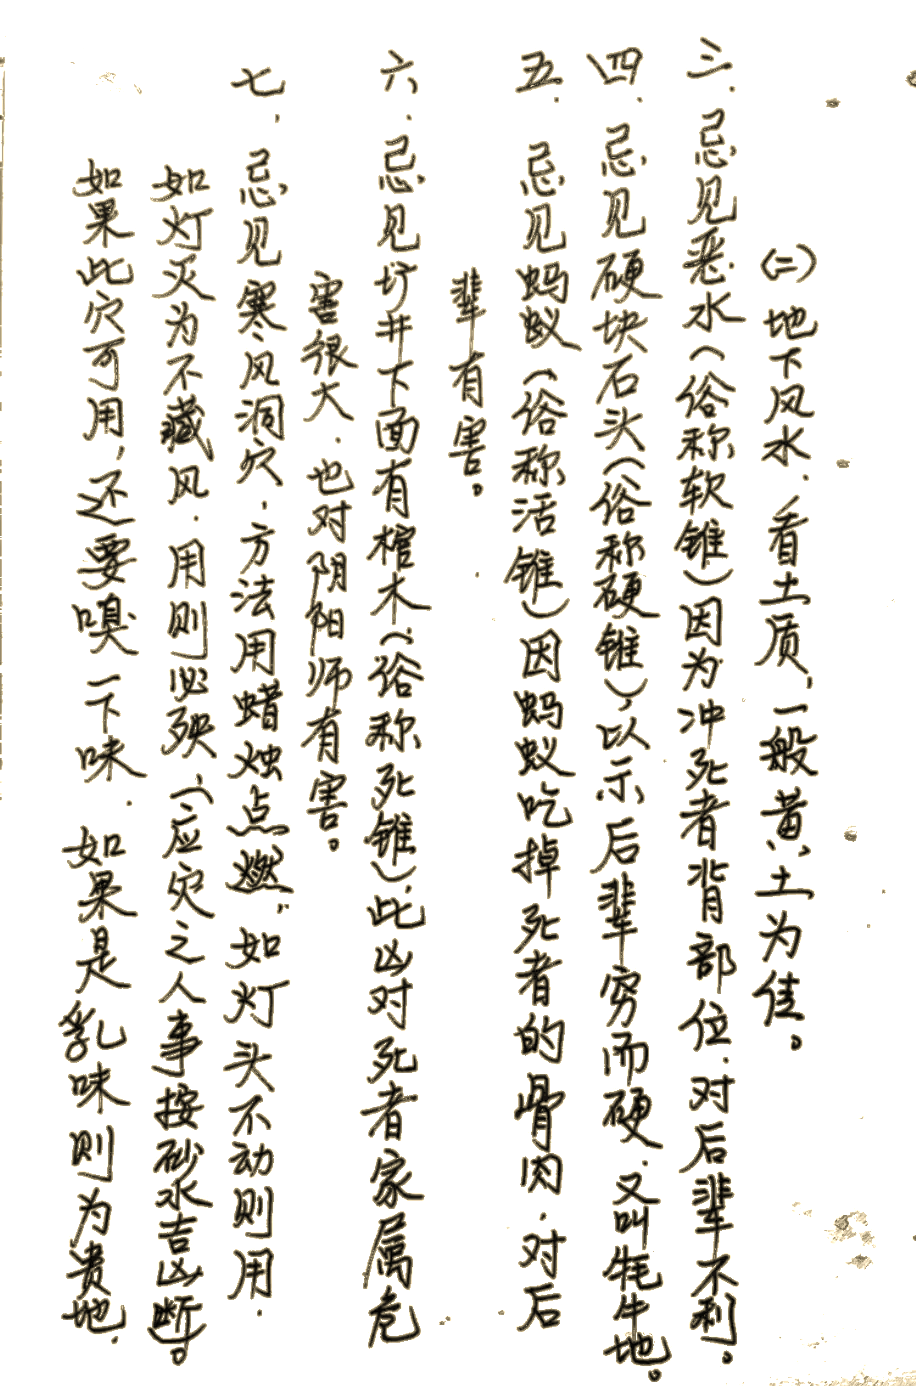 (二)地下风水、看土质,一般黄土为佳。
三.忌见恶水(俗称软锥)因为冲死者背部位.对后辈不利。
四.忌见硬块石头(俗称硬锥),以示后辈穷而硬.又叫牦牛地。
五.忌见蚂蚁(俗称活锥)因蚂蚁吃掉死者的骨肉.对后
辈有害。
六.忌见圹井下面有棺木(俗称死锥),此凶对死者家属危
害很大.也对阴阳师有害。
七.忌见寒风洞穴.方法用蜡烛点燃,如灯头不动则用.
如灯灭为不藏风.用则必殃(应灾之人事按砂水吉凶断)。
如果此穴可用,还要嗅一下味.如果是乳味则为贵地.